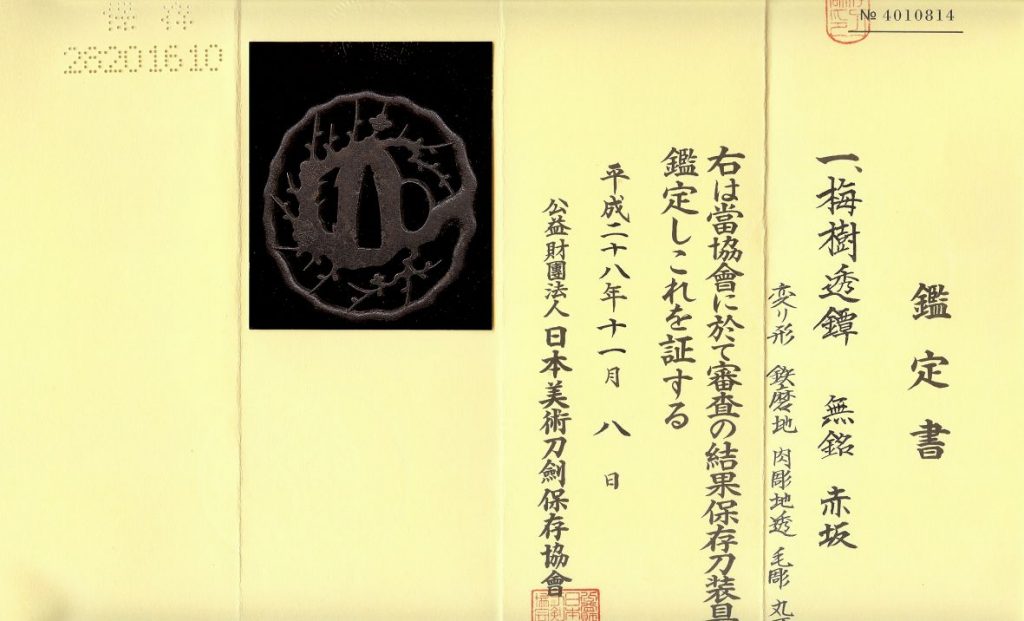 № 4010814
鑑定書
一、梅樹透鐔 無銘 赤坂
変り形 鉄磨地 肉彫地透 毛彫 丸
右は當協會に於て審査の結果保存刀装具
鑑定しこれを証する
平成二十八年十一月八日
公益財團法人 日本美術刀劍保存協會
保存
28201610